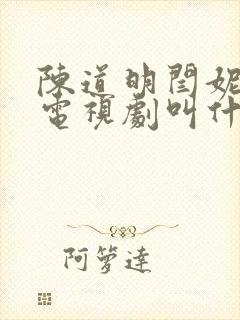 陳道明閆妮
電視劇叫什
阿箩達